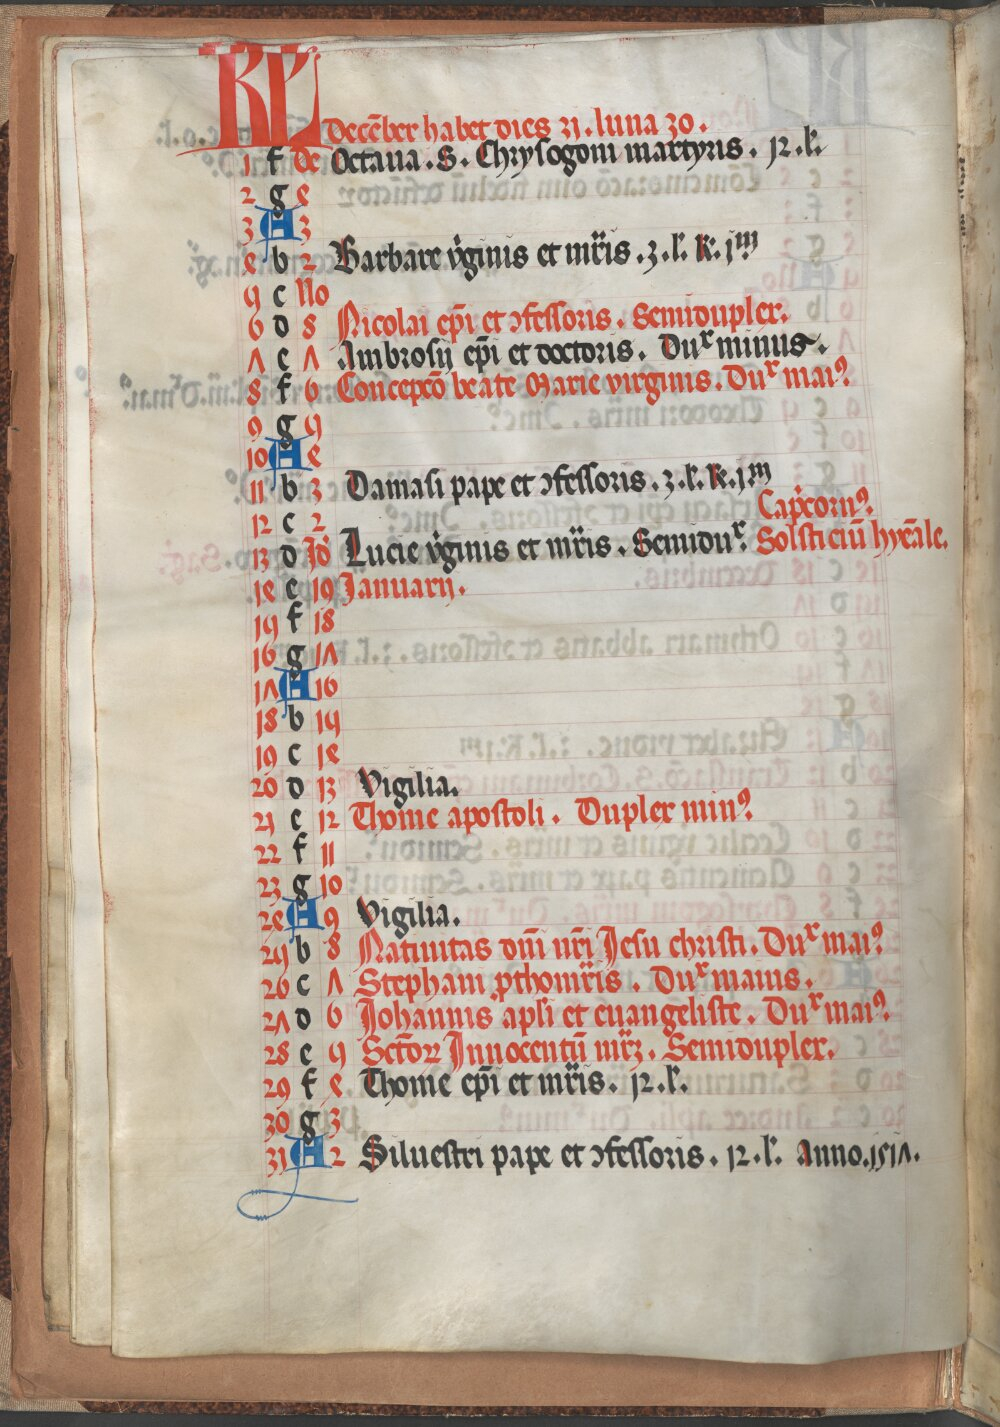 KL
Decēber habet dies 31. luna 30.
1 f De Octaua. S. Chrysogoni martyris. 12. l'.
2 g 4
3 A 3
4 b 2 Barbare v'ginis et mr̄is. 3. l'. R. jm
5 c No
6 d 8 Nicolai ep̄i et ɔfessoris. Semiduplex.
7 e 7 Ambrosij ep̄i et doctoris. Dux minus.
8 f 6 Concepcō beate Marie virginis. Dux maiꝰ.
9 g 5
10 A 4
11 b 3 Damasi pape et ɔfessoris. 3. l'. R. jm
12 c 2 Cap'cornꝰ.
13 d Jd' Lucie v'ginis et mr̄is. Semidux. Solsticiū hyēale.
14 e 19 Januarij.
15 f 18
16 g 17
17 A 16
18 b 15
19 c 14
20 d 13 Vigilia.
21 e 12 Thome apostoli. Duplex minꝰ.
22 f 11
23 g 10
24 A 9 Vigilia.
25 b 8 Natiuitas dn̄i nr̄i Jesu christi. Dux maiꝰ.
26 c 7 Stephani p̱thomr̄is. Dux maius.
27 d 6 Johannis ap̄li et euangeliste. Dux maiꝰ.
28 e 5 Sctōꝝ Innocentū mr̄ꝝ. Semiduplex.
29 f 4 Thome ep̄i et mr̄is. 12. l'.
30 g 3
31 A 2 Siluestri pape et ɔfessoris. 12. l'. Anno. 1517.